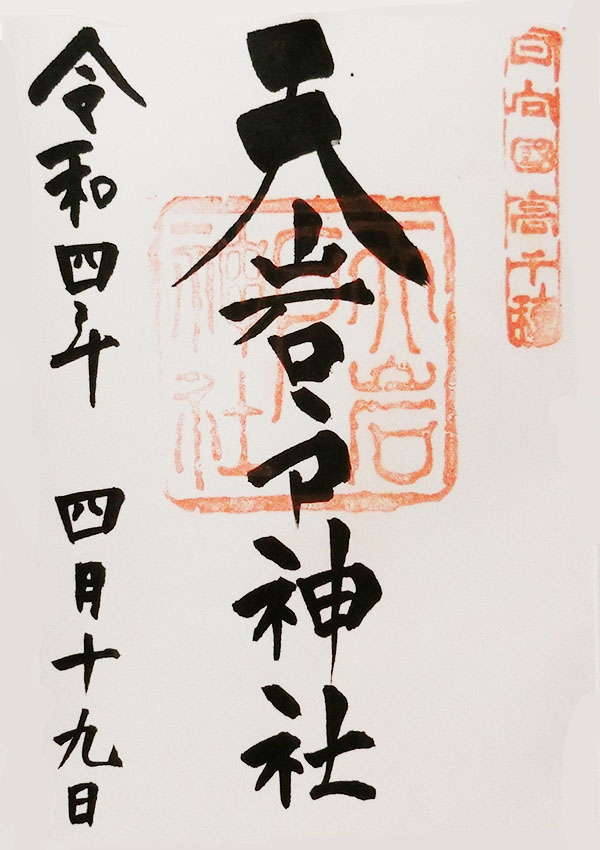 日向國高千穂
天岩戸神社
天岩戸神社
令和四年 四月十九日